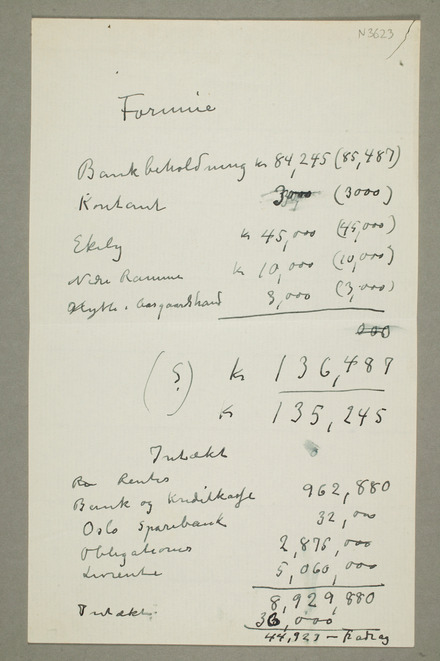 N3623
Formue
Bankbeholdning Kr 84,245 (85,487)
Kontant 3000 (3000)
Ekely Kr 45,000 (45,000)
Nedre Ramme Kr 10,000 (10,000)
Hytte i Aasgaardstrand 3,000 (3,000)
000
(S) Kr 136,487
Kr 135,245
Intækt
Renter
Bank og Kreditkasse 962,880
Oslo Sparebank 32,000
Obligationer 2,875,000
Livrente 5,060,000
8,929,880
Intækt 36,000
44,929 – Fradrag